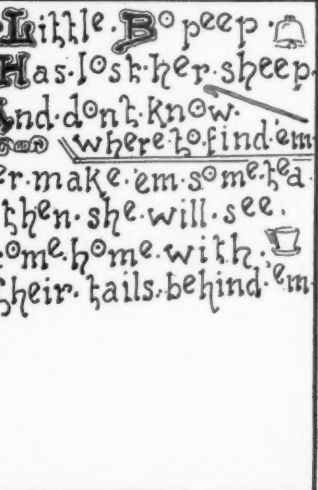 Little Bo peep
Has lost her sheep
And don't know
where to find 'em
er make 'em some tea
then she will see
ome home with
their tails behind 'em